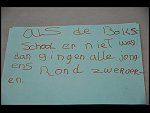 ALS de BOKS
School er niet was
dan gingen alle jong
ens Rond zwerver
en.